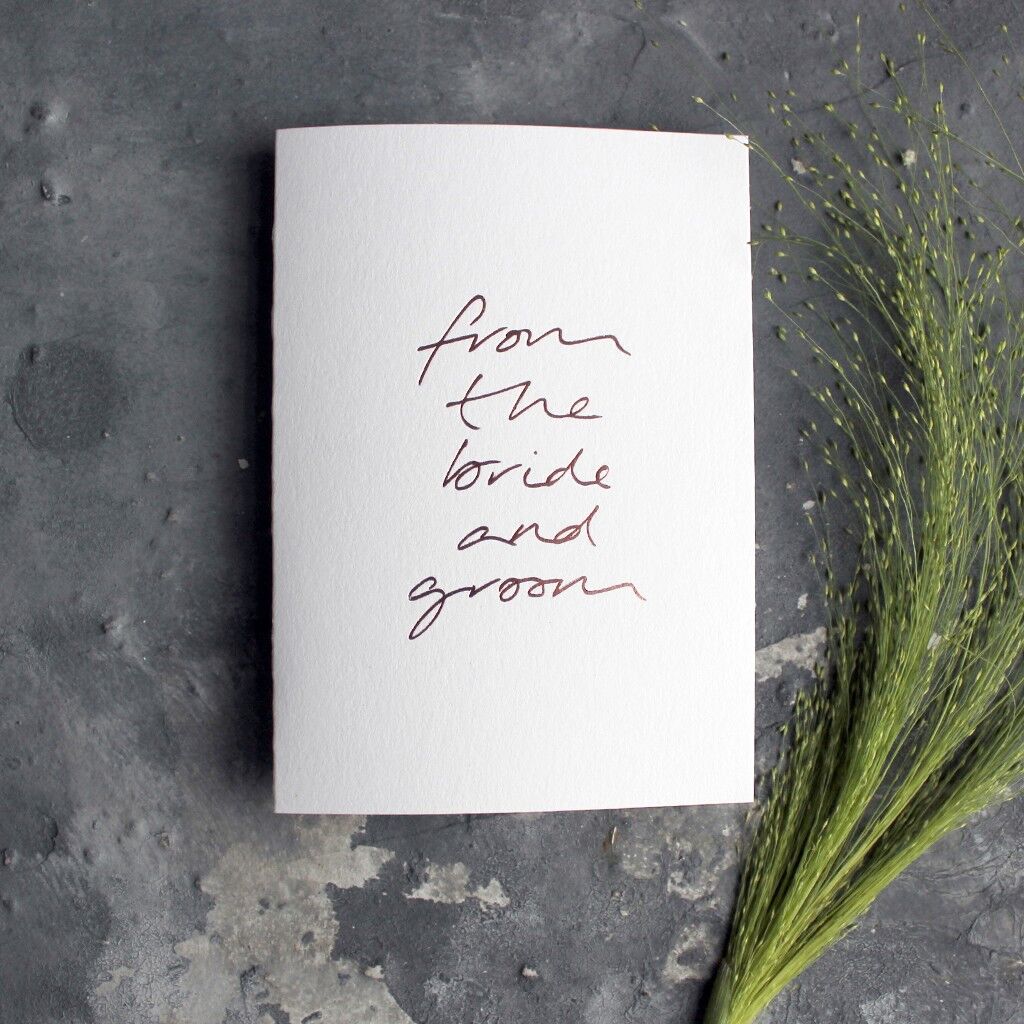 from
the
bride
and
groom